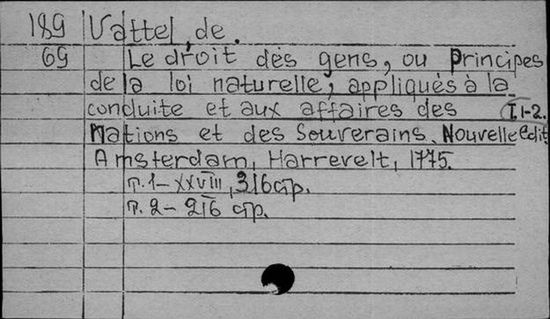 189 Vattel, de.
69 Le droit des gens, ou principes
de la loi naturelle, appliqués à la
conduite et aux affaires des (T.1-2.
Nations et des Souverains. Nouvelle edit.
Amsterdam, Harrevelt, 1775.
т. 1-XXVIII, 316 стр.
т. 2- 216 стр.